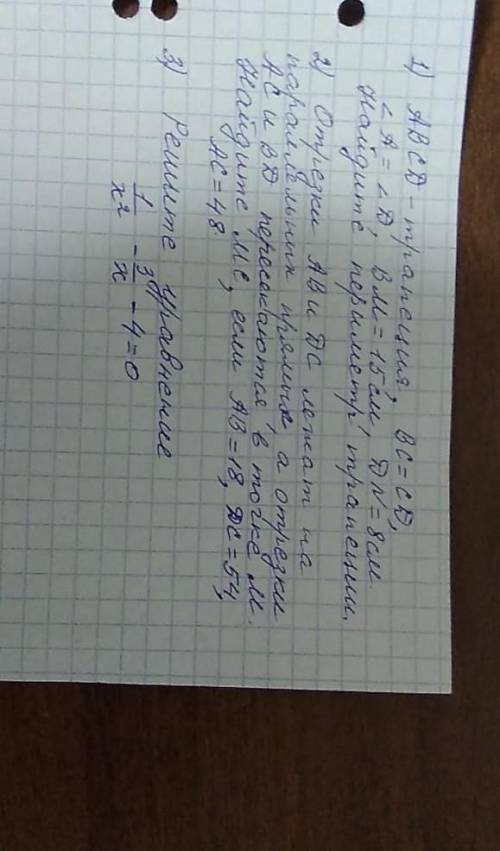 1) ABCD - трапеция, BC = CD,
∠A = ∠D, BM = 15 см DN = 8 см.
Найдите периметр трапеции.
2) Отрезки AB и DC лежат на
параллельных прямых а отрезки
AC и BD пересекаются в точке M.
Найдите MC, если AB = 18, DC = 54,
AC = 48
3) Решите уравнение
1/x² - 3/x - 4 = 0